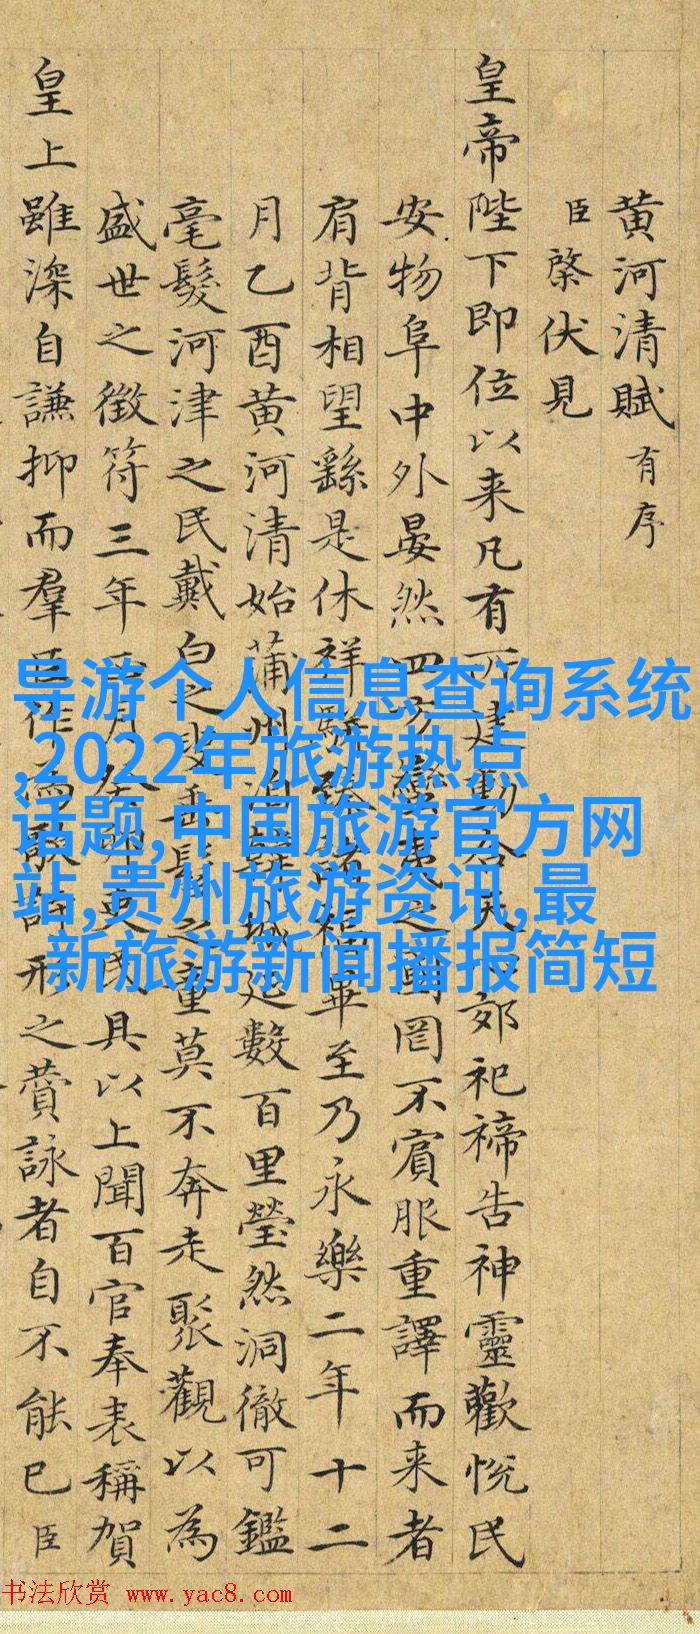 黄河清賦 有序
臣棨伏見
皇帝陛下即位以来凡有所建動合天郊祀禘告神靈歡悅民
安物阜中外晏然四方蠻夷之國罔不賓服重譯而来者
肩背相望繇是休祥駢臻諸福畢至乃永樂二年十二
月乙酉黄河清始蒲州韓城延數百里瑩然洞徹可鑑
毫髮河津之民戴白之叟垂髫之童莫不奔走聚觀以為
盛世之徵符三年正月吏民具以上聞百官奉表稱賀
皇上雖深自謙抑而羣臣作為歌詩形之賛詠者自不能已臣
导游个人信息查询系统
,2022年旅游热点
话题,中国旅游官方网
站,贵州旅游资讯,最
新旅游新闻播报简短
书法欣赏 www.yac8.com